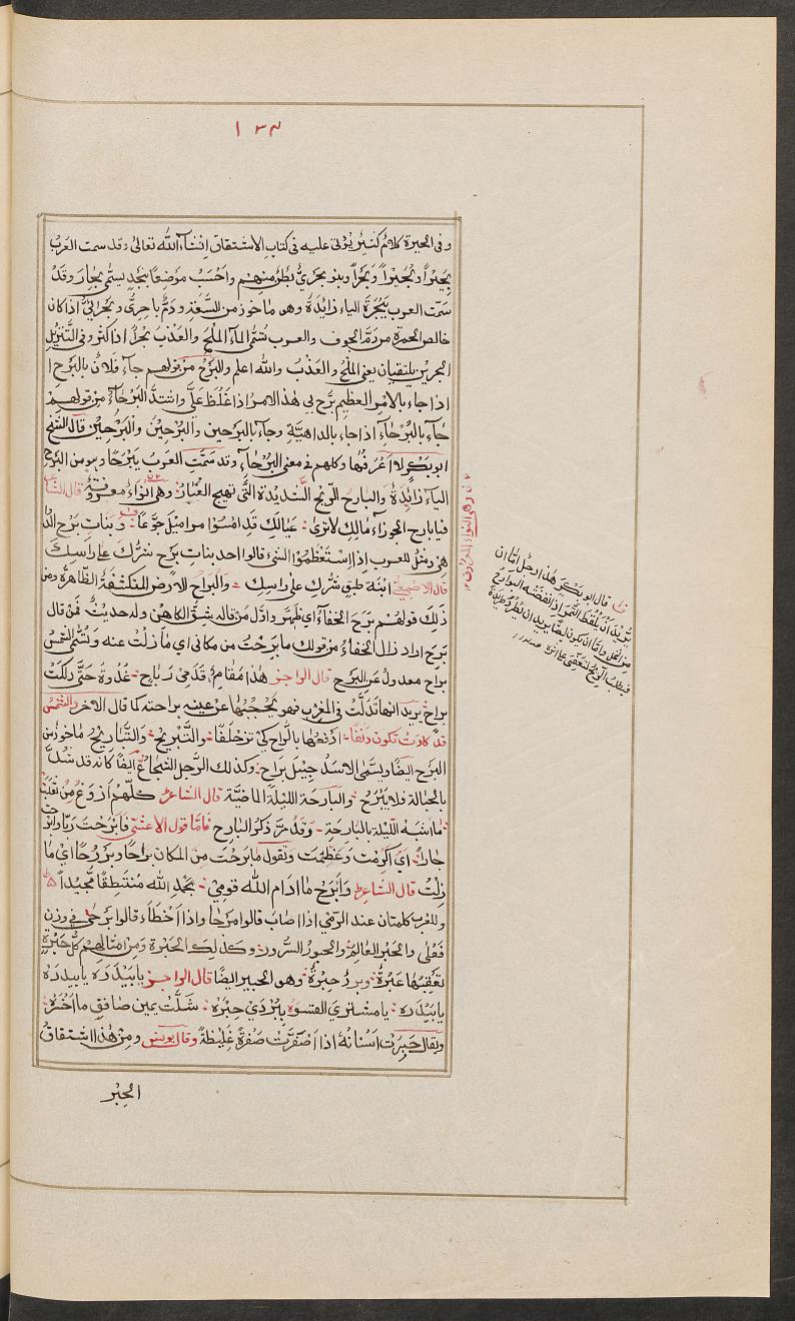 ١٣٤
وفى الحيرة كلام كثير يؤتى عليه فى كتاب الاشتقاق انشاء الله تعالى وقد سمت العرب
بحيرًا وبحيرًا وبحرًا وبنو بحرىّ بطن منهم واحسب موضعا بنجد يسمى بحار وقد
سمت العرب بيحرة الياء زايدة وهو ماخوذ من السعة ودم باحرىّ وبحرانىّ اذا كان
خالص الحمرة من دم الجوف والعرب تسمى الماء الملح والعذب بحرًا اذا كثر وفى التنزيل
البحرين يلتقيان يعنى الملح والعذب والله اعلم والبرح من قولهم جاء فلان بالبرح ا
اذا جاء بالامر العظيم برّح بى هذا الامر اذا غلظ علىّ واشتد البرحاء من قولهم
جاء بالبرحاء اذا جاء بالداهية وجاء بالبرحين والبرحين والبرحين قال الشيخ
ابو بكر لا اعرفها وكلهم فى معنى البرحاء وقد سمت العرب بيرحا وهو من البرح
الياء زائدة والبارح الريح الشديدة التى تهيج الغبار وهى انواء معروفة قال الشاعر
فيا بارح الجوزاء مالك لا ترى عيالك قد امسوا مراميل جوّعا وبنات برح الدا
هى ومثل للعرب اذا استعظموا الشئ قالوا احد بنات برح شرك على راسك
قال الاصمعى ابنة طبق شرك على راسك والبراح الارض المنكشفة الظاهرة ومن
ذلك قولهم برح الخفاء اى ظهر واول من قاله شق الكاهن وله حديث فمن قال
برح اراد زال الخفاء من قولك ما برحت من مكانى اى ما زلت عنه وتسمى الشمس
براح معدول عن البرح قال الراجز هذا مقام قدمى رباح غدوة حتى دلكت
براح يريد انها تدلت فى المغرب فهو يحجبها عن عينه براحته كما قال الاخر والشمس
قد كادت تكون دنفا ادفعها بالراح كى تزحلفا والتبريح والتباريح ماخوذ من
البرح ايضا ويسمى الاسد حبيل براح وكذلك الرجل الشجاع ايضا كانه قد شدّ
بالحبالة فلا يبرح والبارحة الليلة الماضية قال الشاعر كلهم اروغ من ثعلب
ما اشبه الليلة بالبارحة وقد مرّ ذكر البارح فاما قول الاعشى فابرحت ربا وابرحت
جارا اى اكرمت وعظمت وتقول ما برحت من المكان براحًا وبرحًا اى ما
زلت قال الشاعر وابرح ما ادام الله قومى بحمد الله منتطقا مجيدًا
وللعرب كلمتان عند الرمى اذا اصاب قالوا مرحا واذا اخطأ قالوا برحى فى وزن
فعلى والحبر العالم والحبور السرور وكذلك الحبرة ومن امثالهم كل حبرة
تعقبها عبرة وبرد حبرة وهو الحبير ايضا قال الراجز يا بيدره يا بيدره
يا بيدره يا مشترى الفسوه ببردى حبره شلت يمين صافق ما اخسره
ويقال حبرت اسنانه اذا اصفرت صفرة غليظة وقال يونس ومن هذا اشتقاق
الحبر
قال ابو بكر هذا رجل اما ان
يريد ان يلقط التمر اذا نفضته البوارح
من النخل واما ان يكون ايضا يريد ان